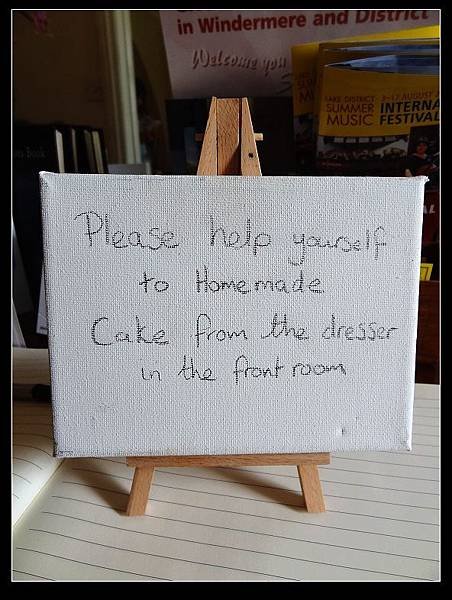 in Windermere and District
Welcome you
LAKE DISTRICT
SUMMER
MUSIC
INTERNA
FESTIVAL
Please help yourself
to Homemade
Cake from the dresser
in the front room